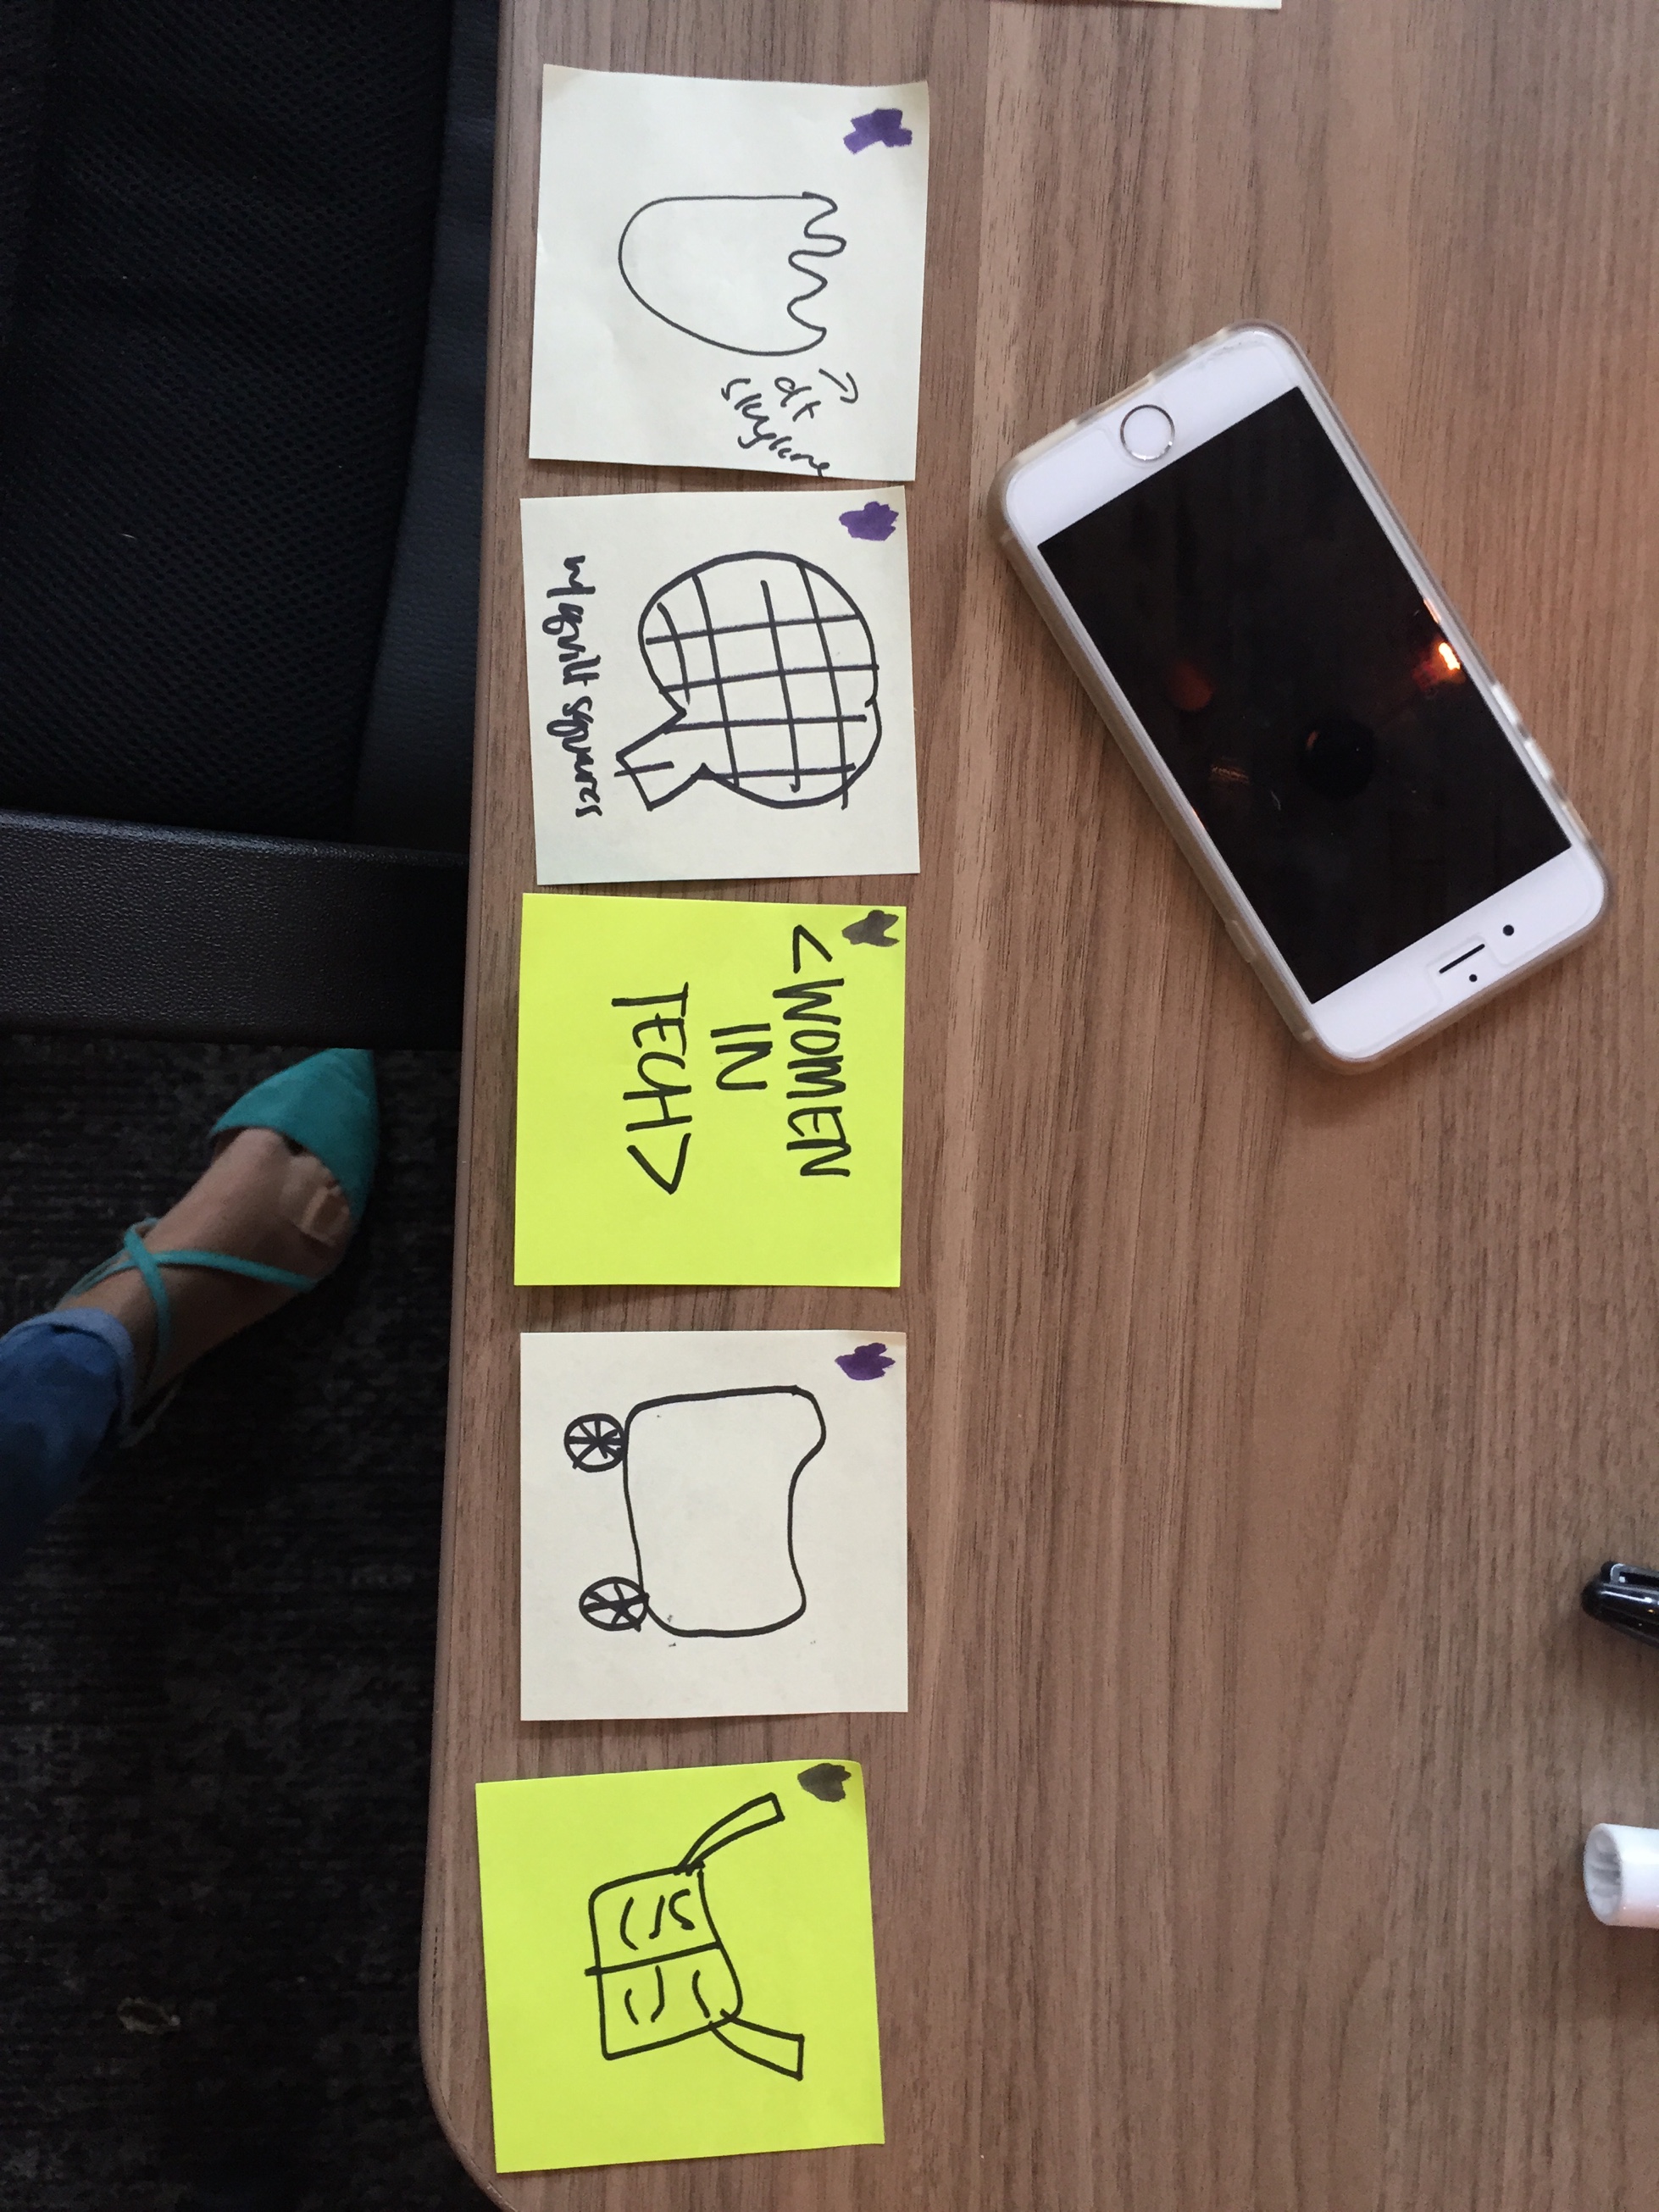 →
dt
skyline
w/ quilt squares
<WOMEN
IN
TECH>